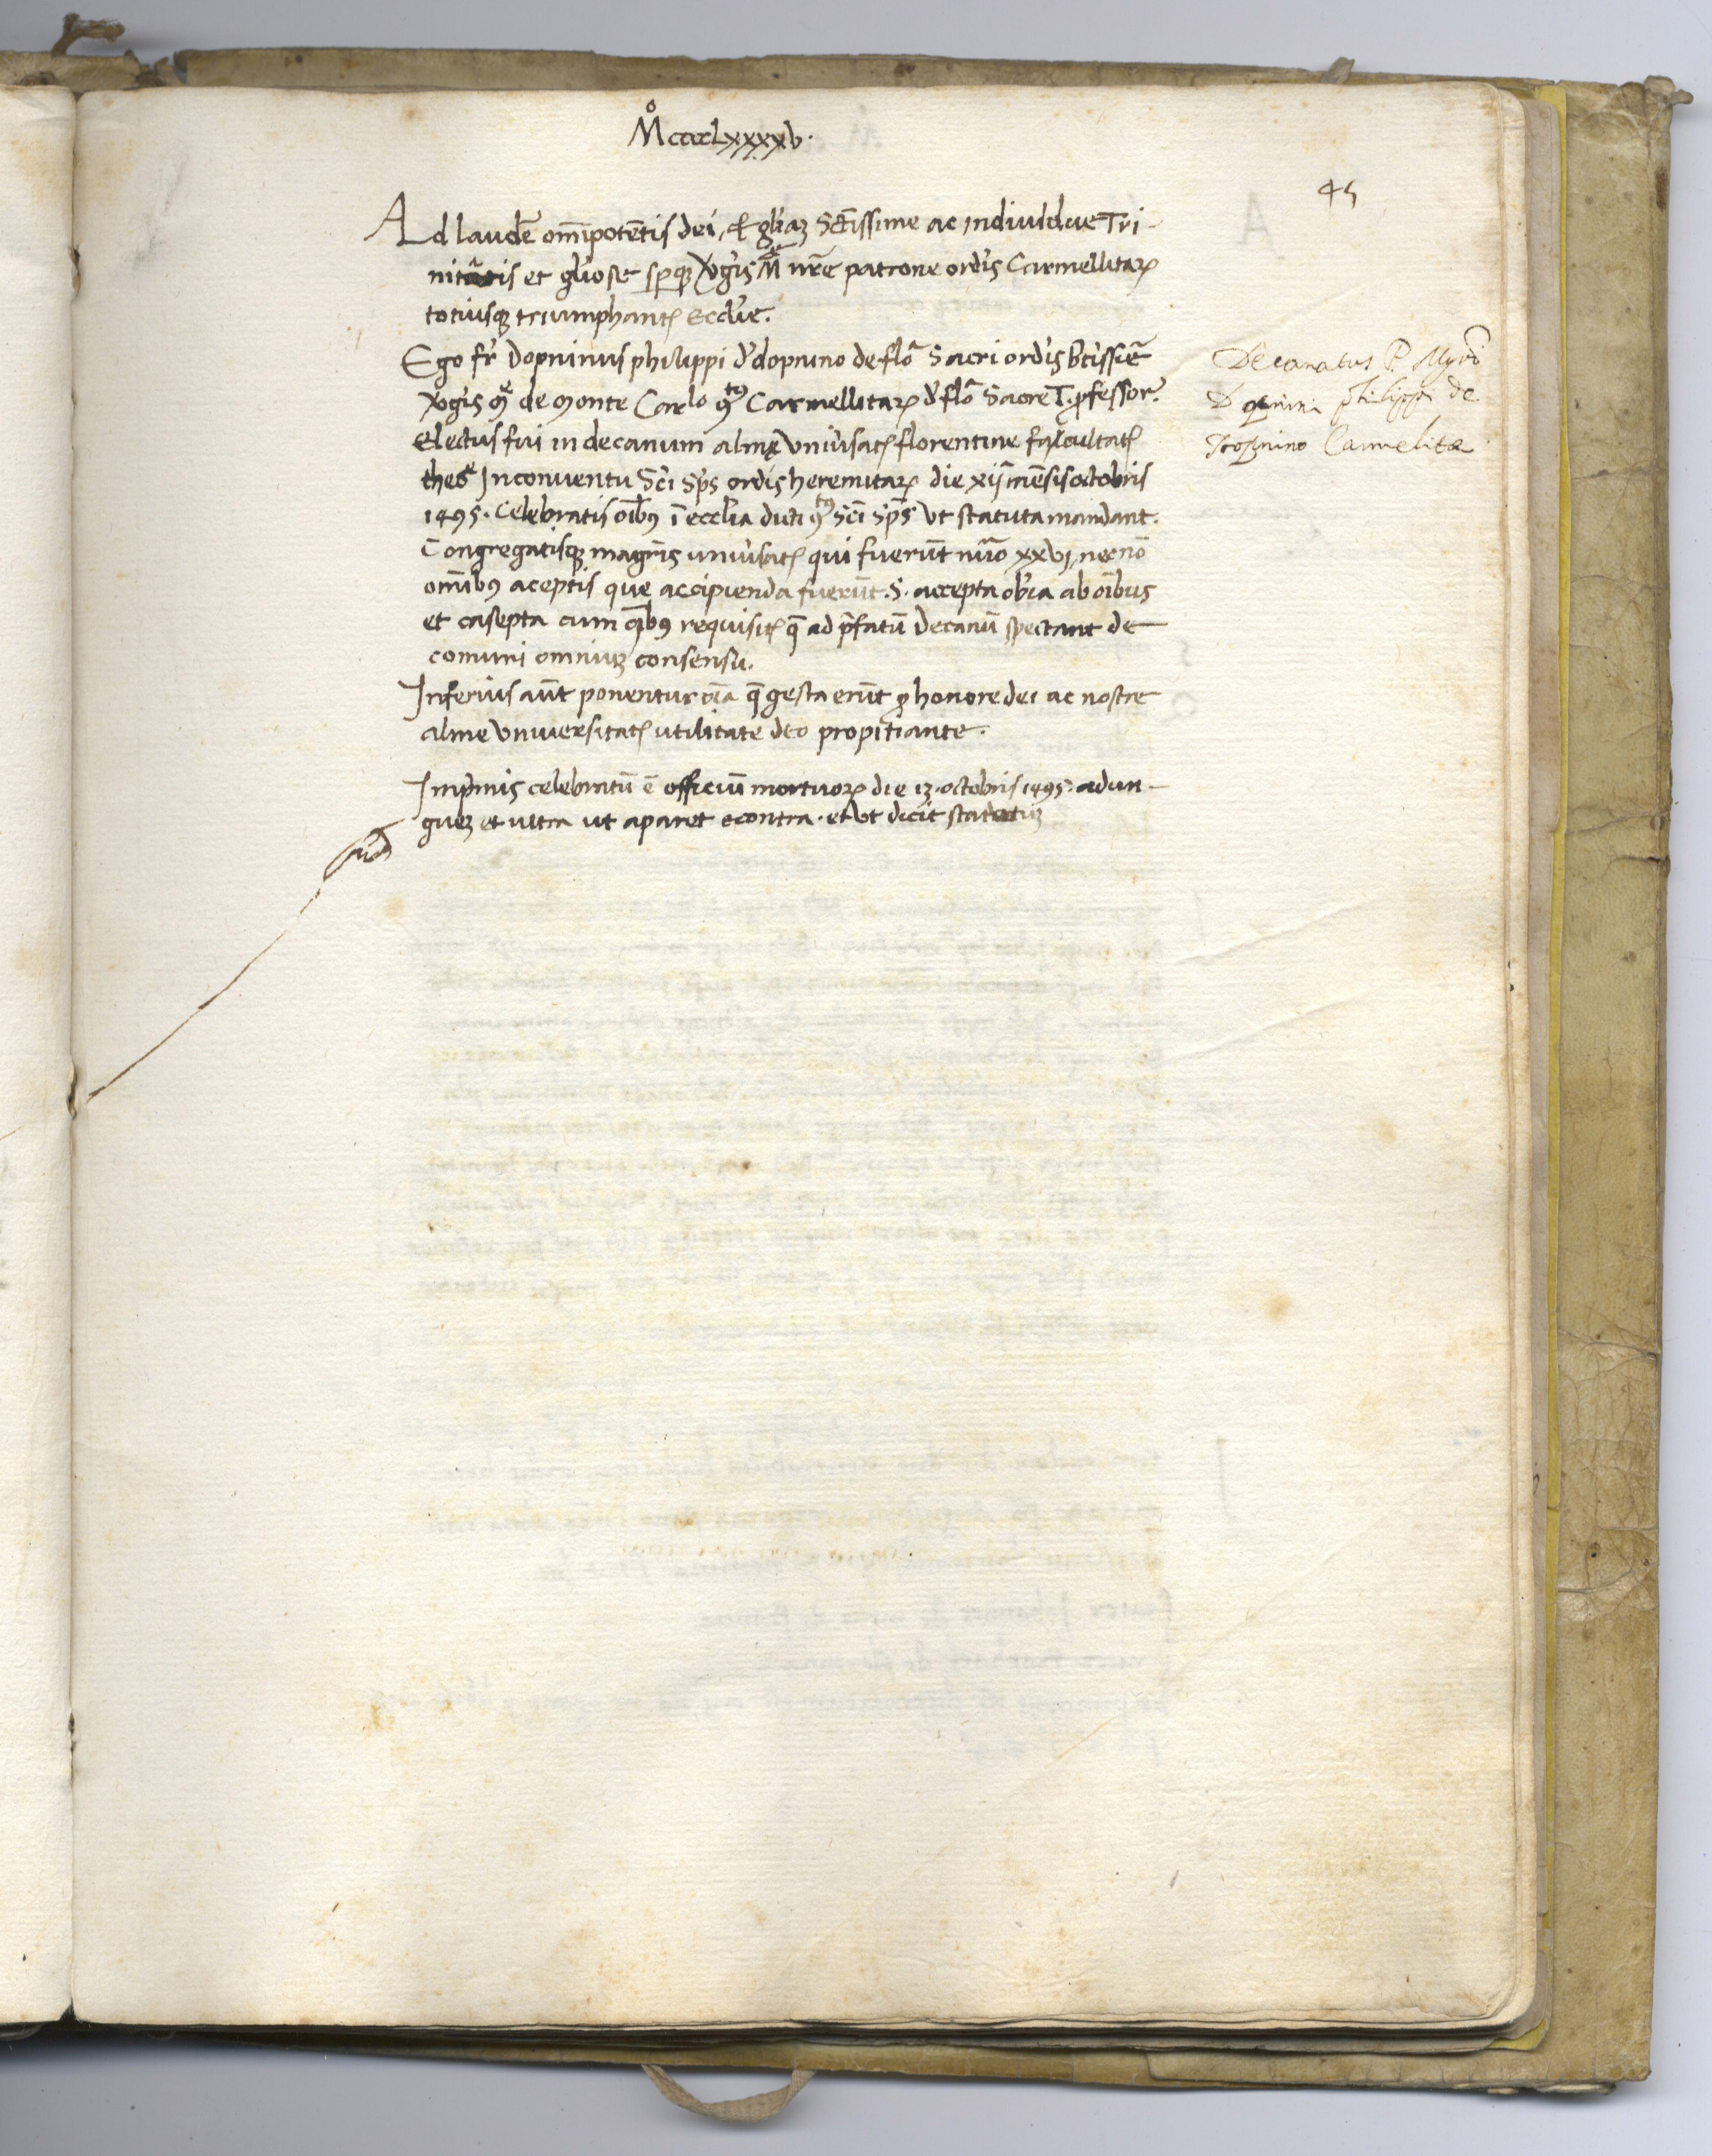 M̊ccccLxxxxv.
45
Ad laudē om̄ipotētis dei, & gl'iaꝫ Sctissime ac indiuidue Tri-
nitātis et gl'iose sp̱qꝫ V'gis M̄ nr̄e patrone ord'is Carmellitaꝝ
totiusqꝫ triumphantꝭ Eccl'ie.
Ego fr̄ Dopninus philippi d' dopnino de flo᷈ Sacri ord'is btissiē
V'gis M̄ de monte Carlo 9tꝰ Carmellitaꝝ d' flo᷈ Sacre T. ꝓfessor.
Electus fui in decanum almę Vniu'satꝭ florentine facultatꝭ
theo^e In conuentu Sc̄i Sp̄s ordis heremitaꝝ die xij mēsis octobris
1495. Celebratis oībꝰ ī eccl'ia dicti 9tꝰ Sc̄i Sp̄s Vt statuta mandant.
Congregatisqꝫ magr̄is uniu'satꝭ qui fuerūt nūo xxvj, necnō
om̄ibꝰ aceptis que accipienda fuerūt. S. accepta ob'ia ab oībus
et capsepta cum oībꝰ requisitꝭ q̄ ad p̄fatū Decanū spectant de
comuni omniuꝫ consensu.
Inferius aūt ponentur oīa q̄ gesta erūt ꝓ honore dei ac nostre
alme Vniuersitatꝭ utilitate deo propitiante.
Imp̄mis celebratū ē officiū mortuoꝝ die 13. octobris 1495. adun-
gueꝫ et ultra ut aparet econtra. et Vt dicit statutuꝫ
Decanatus P. Mgri
Dopnini philippi de
Dopnino Carmelitæ